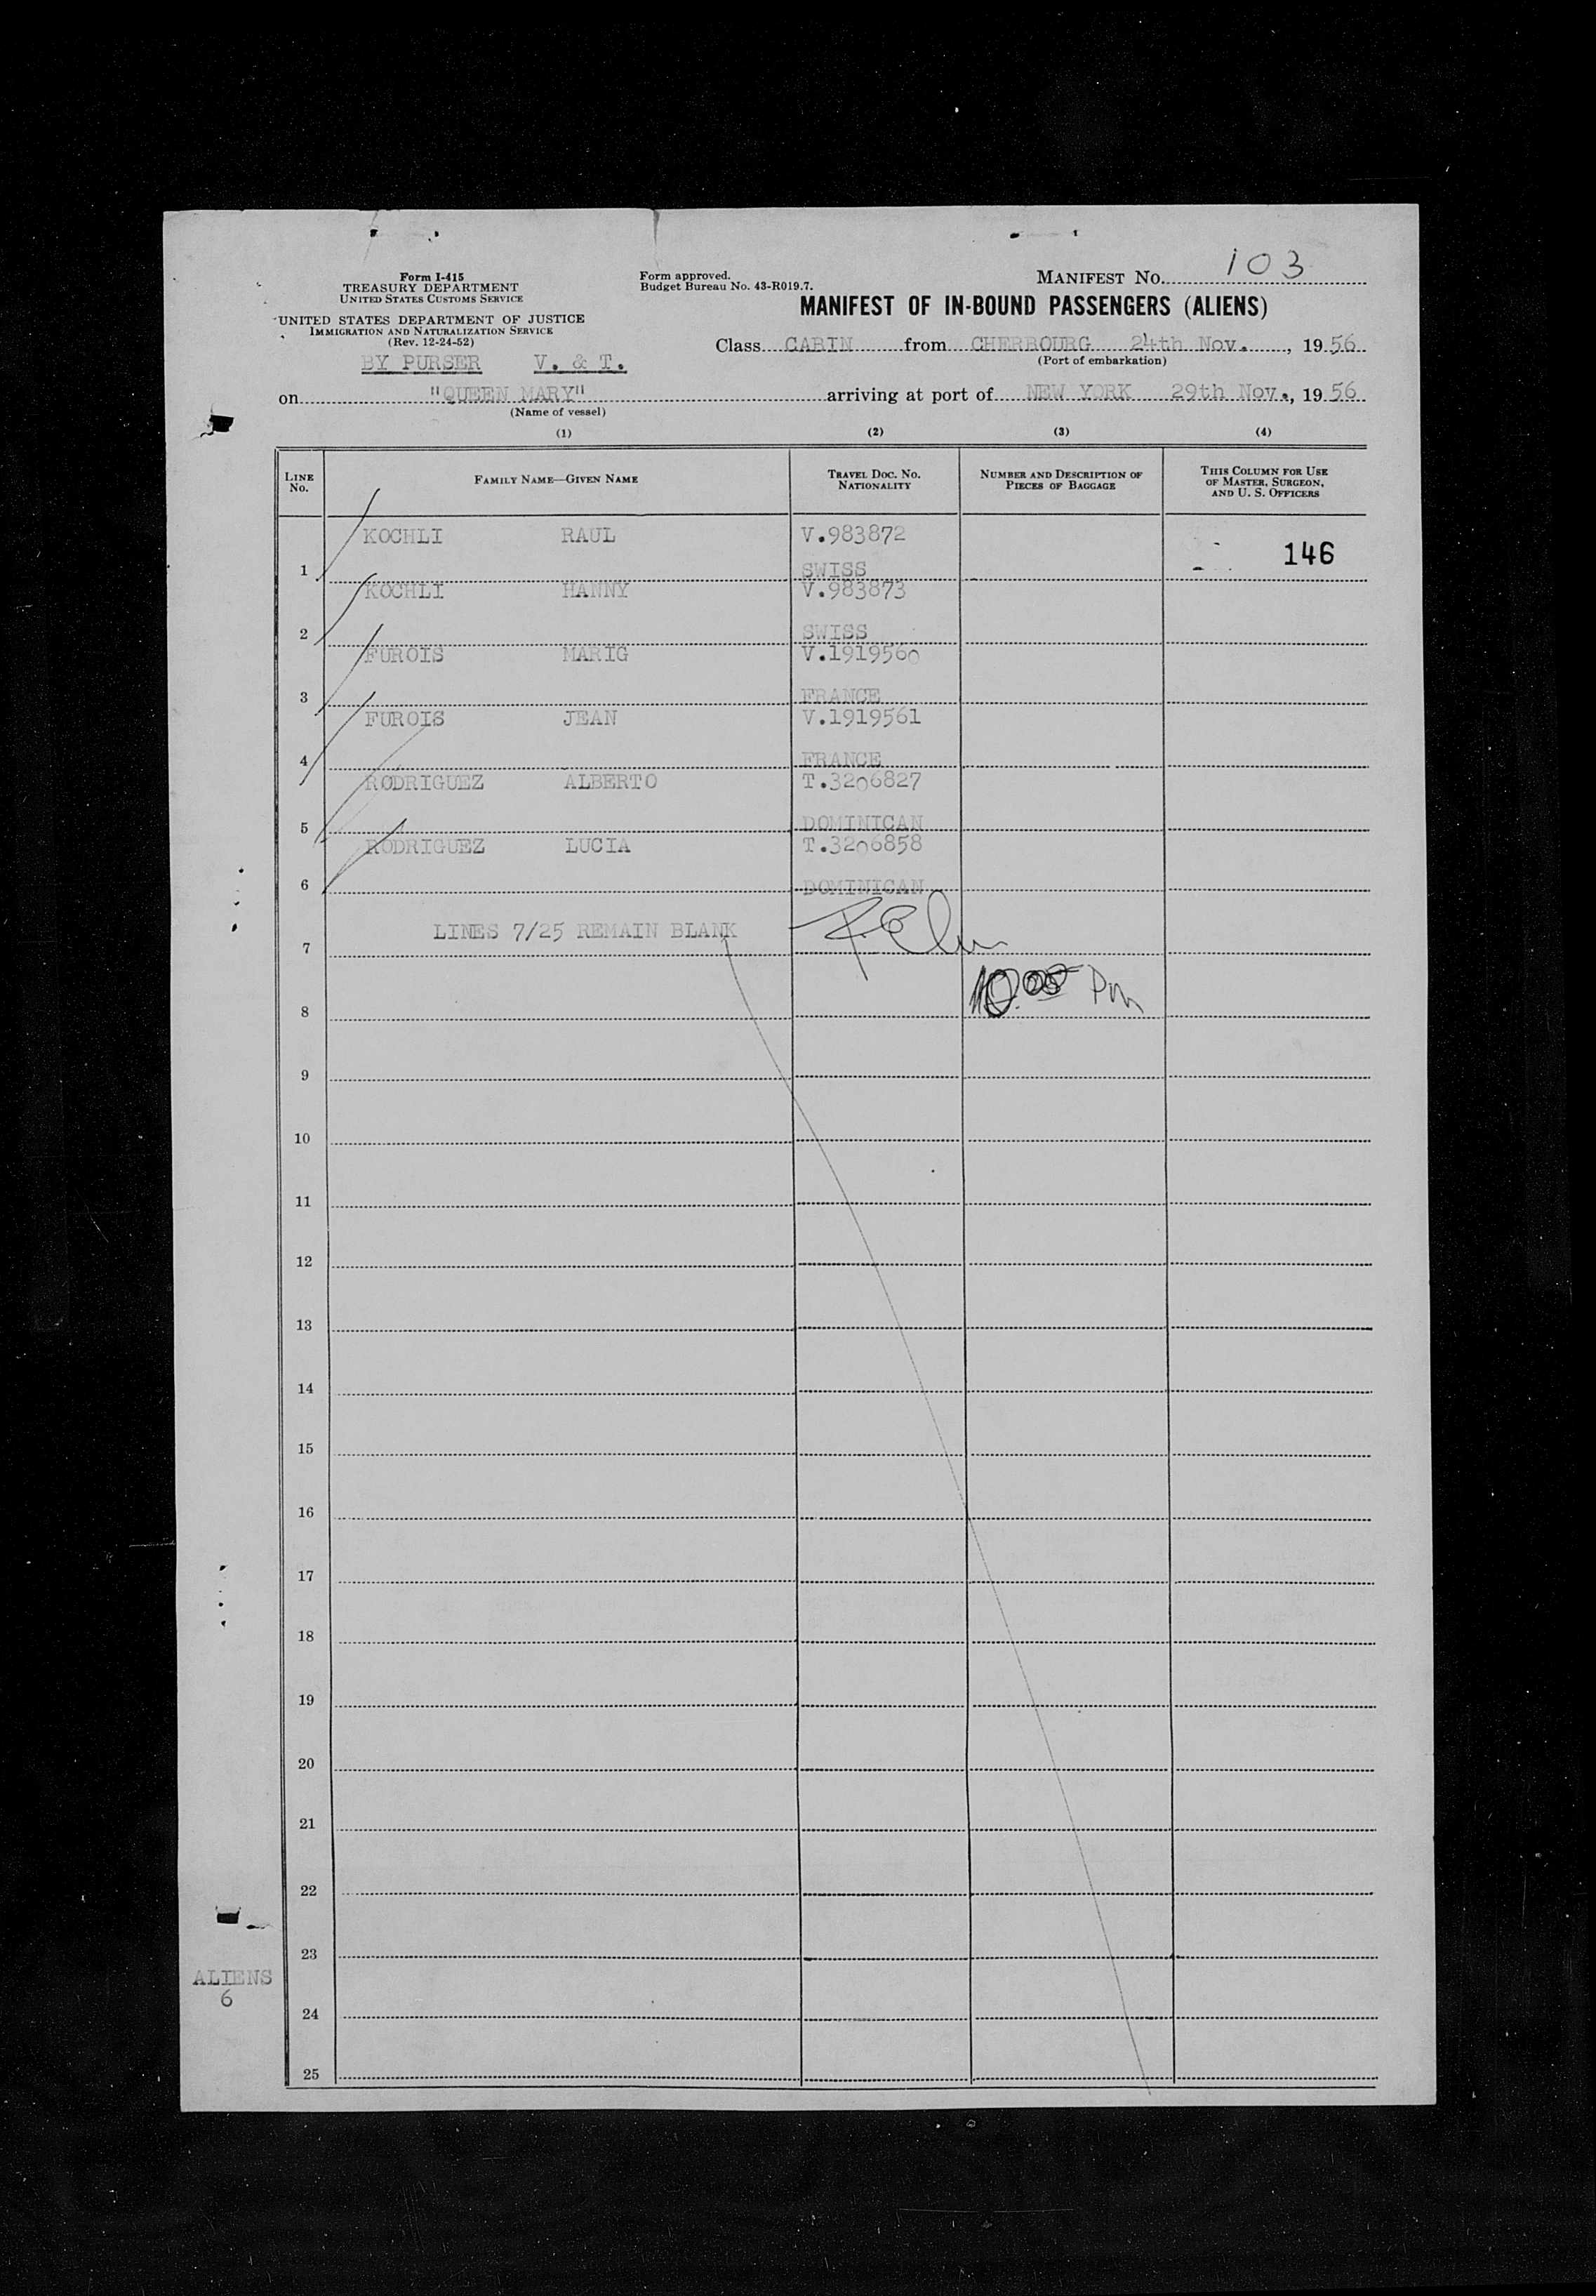 Form I-415
TREASURY DEPARTMENT
UNITED STATES CUSTOMS SERVICE
UNITED STATES DEPARTMENT OF JUSTICE
IMMIGRATION AND NATURALIZATION SERVICE
(Rev. 12-24-52)
BY PURSER V. & T.
Form approved.
Budget Bureau No. 43-R019.7.
MANIFEST NO. 103
MANIFEST OF IN-BOUND PASSENGERS (ALIENS)
Class CABIN from CHERBOURG 24th Nov., 1956
(Port of embarkation)
on "QUEEN MARY" arriving at port of NEW YORK 29th Nov., 1956
(Name of vessel)
(1) (2) (3) (4)
LINE No.
FAMILY NAME—GIVEN NAME
TRAVEL DOC. NO. NATIONALITY
NUMBER AND DESCRIPTION OF PIECES OF BAGGAGE
THIS COLUMN FOR USE OF MASTER, SURGEON, AND U. S. OFFICERS
KOCHLI RAUL V.983872
146
1 SWISS
KOCHLI HANNY V.983873
2 SWISS
FUROIS MARIG V.1919560
3 FRANCE
FUROIS JEAN V.1919561
4 FRANCE
RODRIGUEZ ALBERTO T.3206827
5 DOMINICAN
RODRIGUEZ LUCIA T.3206858
6 DOMINICAN
LINES 7/25 REMAIN BLANK
7
PM
8
9
10
11
12
13
14
15
16
17
18
19
20
21
22
23
ALIENS
6
24
25